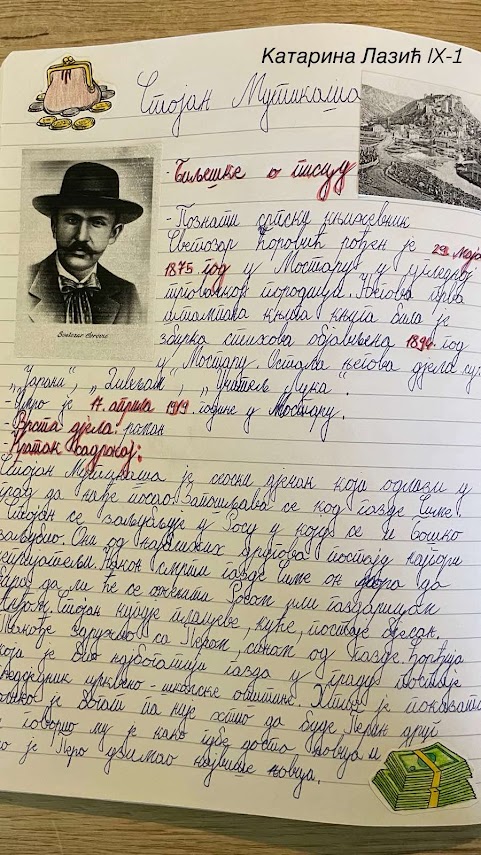 Катарина Лазић IX-1
Стојан Мутикаша
-Биљешке о писцу
-Познати српски књижевник
Светозар Ћоровић рођен је 29. маја
1875 год у Мостару у угледној
трговачкој породици. Његова прва
штампана књига књига била је
збирка стихова објављена 1894. год
у Мостару. Остала његова дјела су:
Svetozar Ćorović
„Јарани", „Зулумћар", „Учитељ Лука".
-Умро је 17. априла 1919 године у Мостару.
-Врста дјела: роман
-Кратак садржај:
Стојан Мутикаша је сеоски дјечак који одлази у
град да нађе посао. Запошљава се код газде Симе.
Стојан се заљубљује у Росу у коју се и Бошко
заљубио. Они од најбољих другова постају најгори
непријатељи. Након смрти газде Симе он мора да
бира да ли ће се оженити Росом или газдарицом
Анђом. Стојан купује плацеве, куће, постаје биједан.
Такође здружио са Пером, сином од газде Ђорђија
која је био најбогатији газда у граду постаје
предсједник црквено-школске општине. Хтио је показати
колико је богат па није хтио да буде Перин друг
и говорио му је како губе доста новца и
што је Перо узимао највише новца.